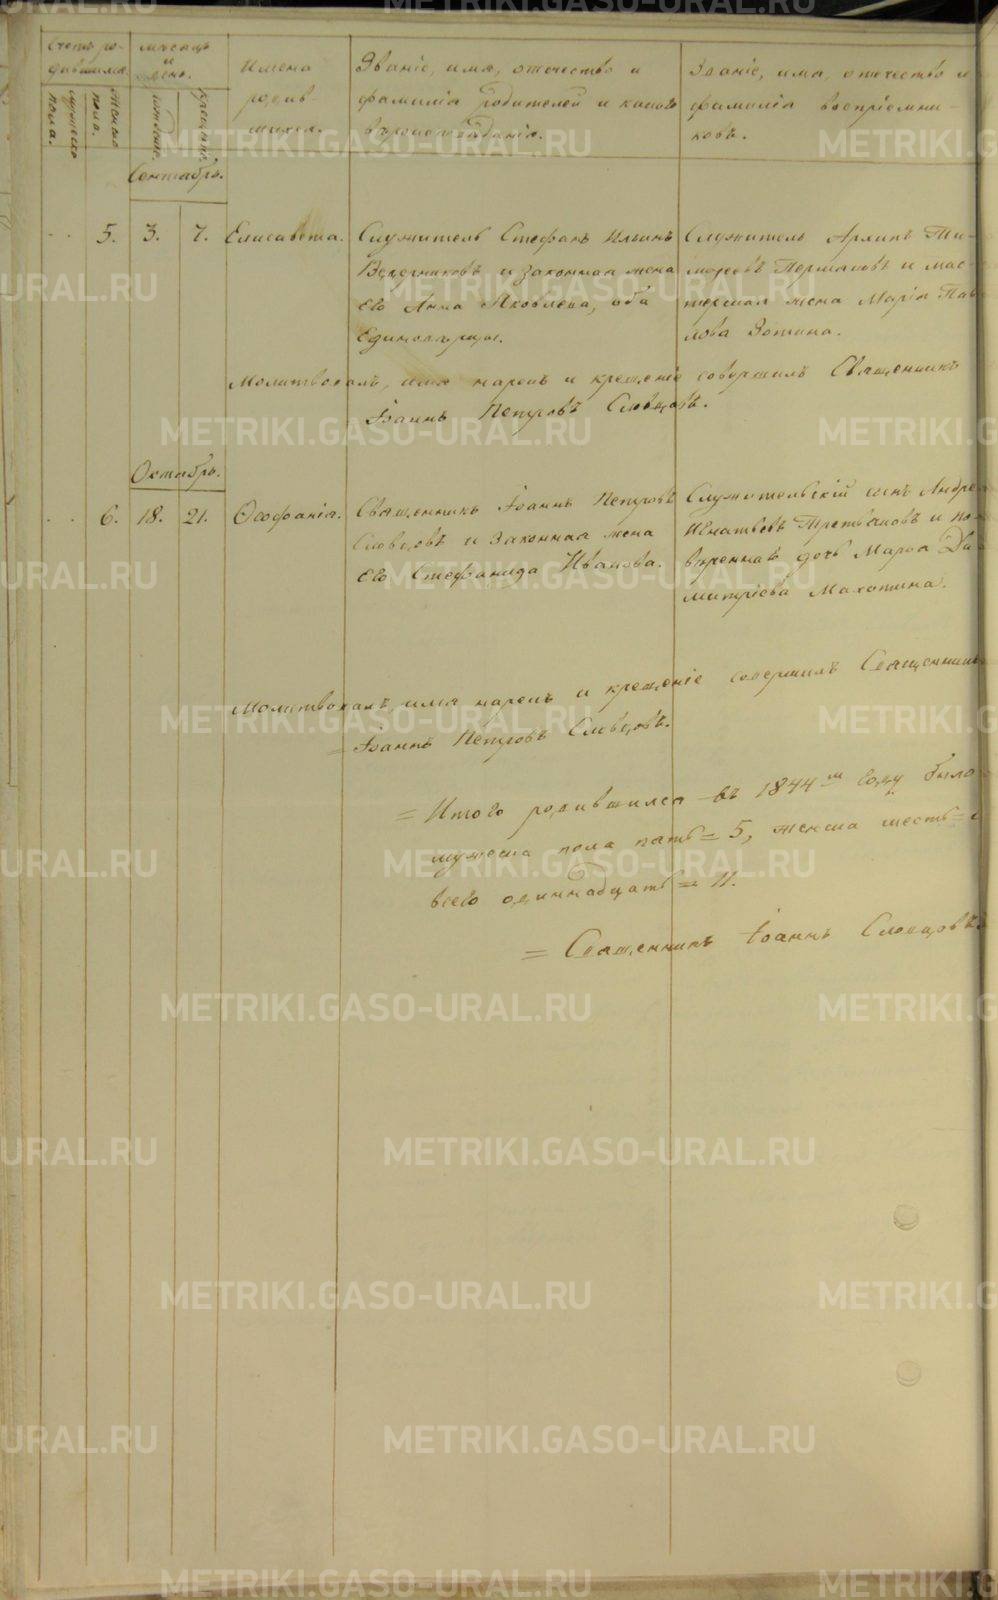 Счетъ ро-
дившихся.
мужеска
пола.
женска
пола.
месяцъ
и
день.
рожденіе.
крещеніе.
Имена
родив-
шихся.
Званіе, имя, отечество и
фамилія родителей и какого
вѣроисповѣданія.
Званіе, имя, отечество и
фамилія воспріемни-
ковъ.
Сентябрь.
5. 3. 7. Елисавета.
Служитель Стефанъ Ильинъ
Ведерниковъ и законная жена
его Анна Яковлева, оба
Единовѣрцы.
Служитель Архипъ Ти-
моѳеевъ Пермяковъ и мас-
терская жена Марія Пав-
лова Зотина.
Молитвовалъ, имя нарекъ и крещеніе совершилъ Священникъ
Іоаннъ Петровъ Словцовъ.
Октябрь.
6. 18. 21. Ѳеофанія.
Священникъ Іоаннъ Петровъ
Словцовъ и законная жена
его Стефанида Иванова.
Служительскій сынъ Андрей
Игнатьевъ Третьяковъ и по-
вѣреннаго дочь Марѳа Ди-
митріева Махотина.
Молитвовалъ, имя нарекъ и крещеніе совершилъ Священникъ
= Іоаннъ Петровъ Словцовъ.
= Итого родившихся въ 1844м году было
мужеска пола пять = 5, женска шесть =
всего одиннадцать = 11.
= Священникъ Іоаннъ Словцовъ
METRIKI.GASO-URAL.RU